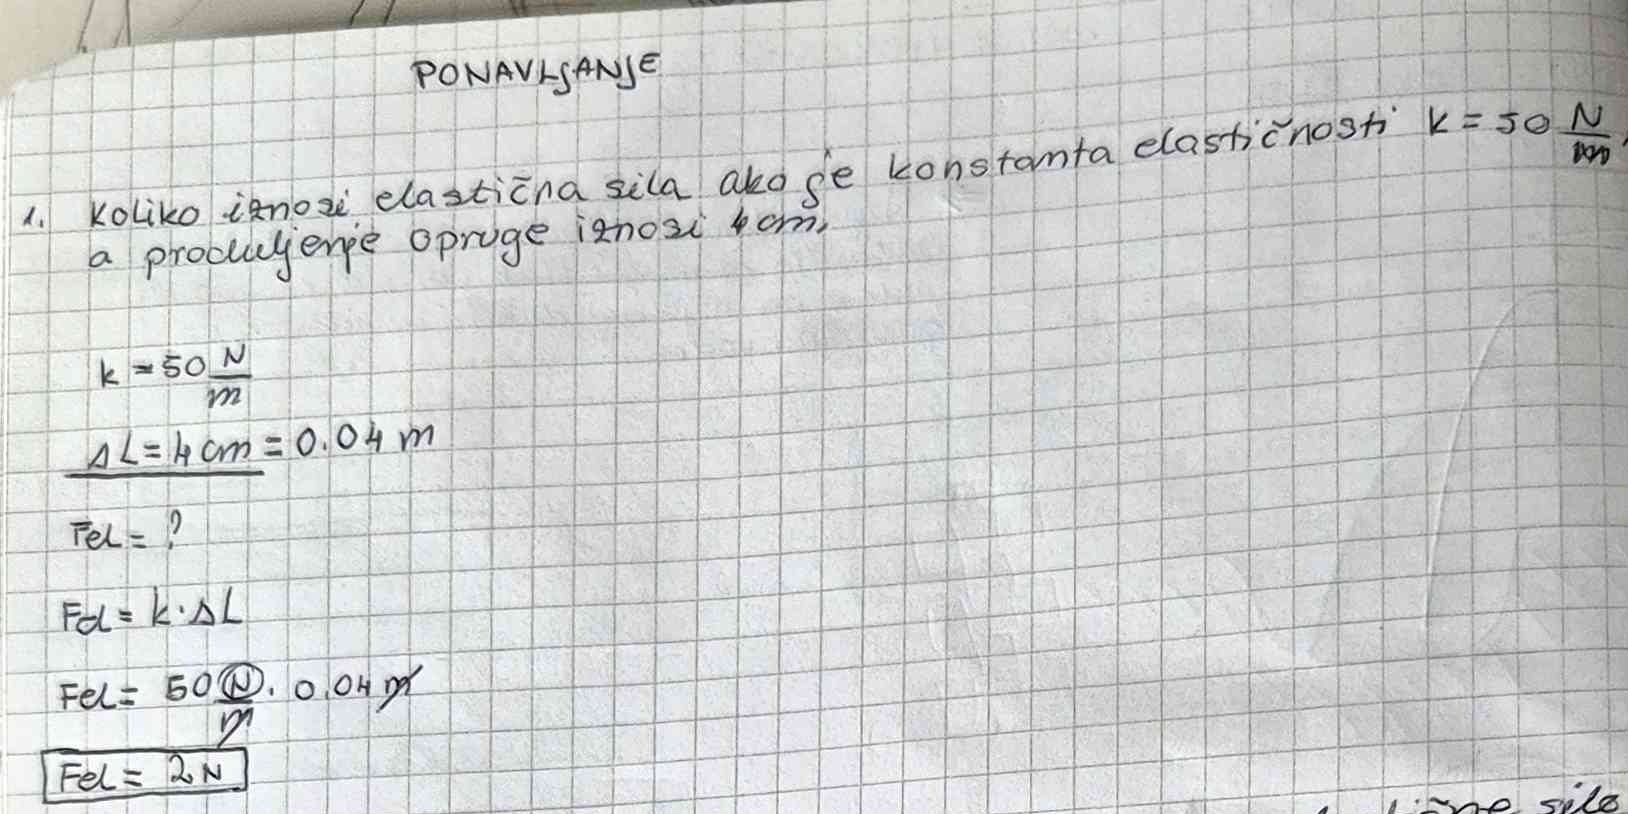 PONAVLJANJE
1. Koliko iznosi elastična sila ako je konstanta elastičnosti k = 50 N/m,
a produljenje opruge iznosi 4 cm,
k = 50 N/m
ΔL = 4 cm = 0.04 m
Fel = ?
Fel = k · ΔL
Fel = 50 N/m · 0.04 m
Fel = 2 N
sile